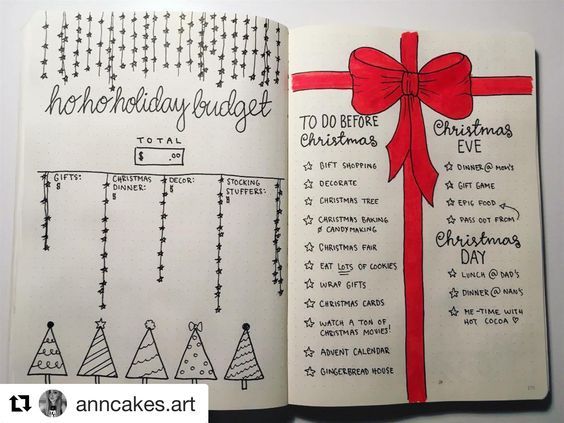 ho ho holiday budget
TOTAL
$ .00
GIFTS:
$
CHRISTMAS
DINNER:
$
DECOR:
$
STOCKING
STUFFERS:
$
TO DO BEFORE
Christmas
GIFT SHOPPING
DECORATE
CHRISTMAS TREE
CHRISTMAS BAKING
& CANDYMAKING
CHRISTMAS FAIR
EAT LOTS OF COOKIES
WRAP GIFTS
CHRISTMAS CARDS
WATCH A TON OF
CHRISTMAS MOVIES!
ADVENT CALENDAR
GINGERBREAD HOUSE
Christmas
EVE
DINNER @ MOM'S
GIFT GAME
EPIC FOOD
PASS OUT FROM
Christmas
DAY
LUNCH @ DAD'S
DINNER @ NAN'S
ME-TIME WITH
HOT COCOA ♡
anncakes.art